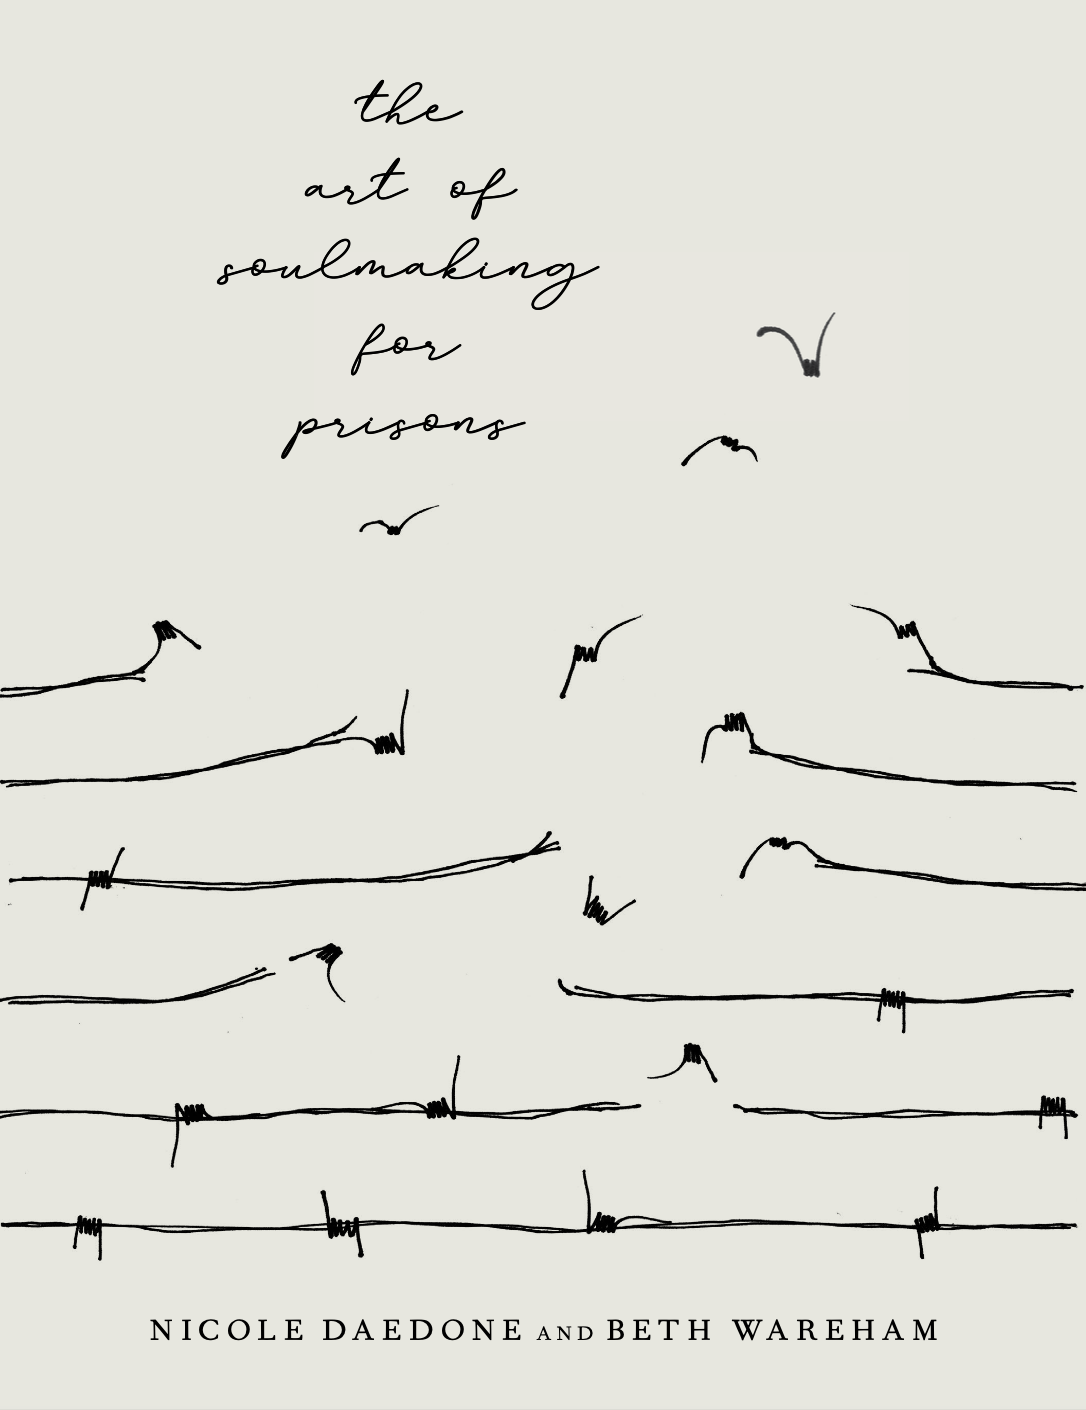 the
art of
soulmaking
for
prisons
NICOLE DAEDONE AND BETH WAREHAM